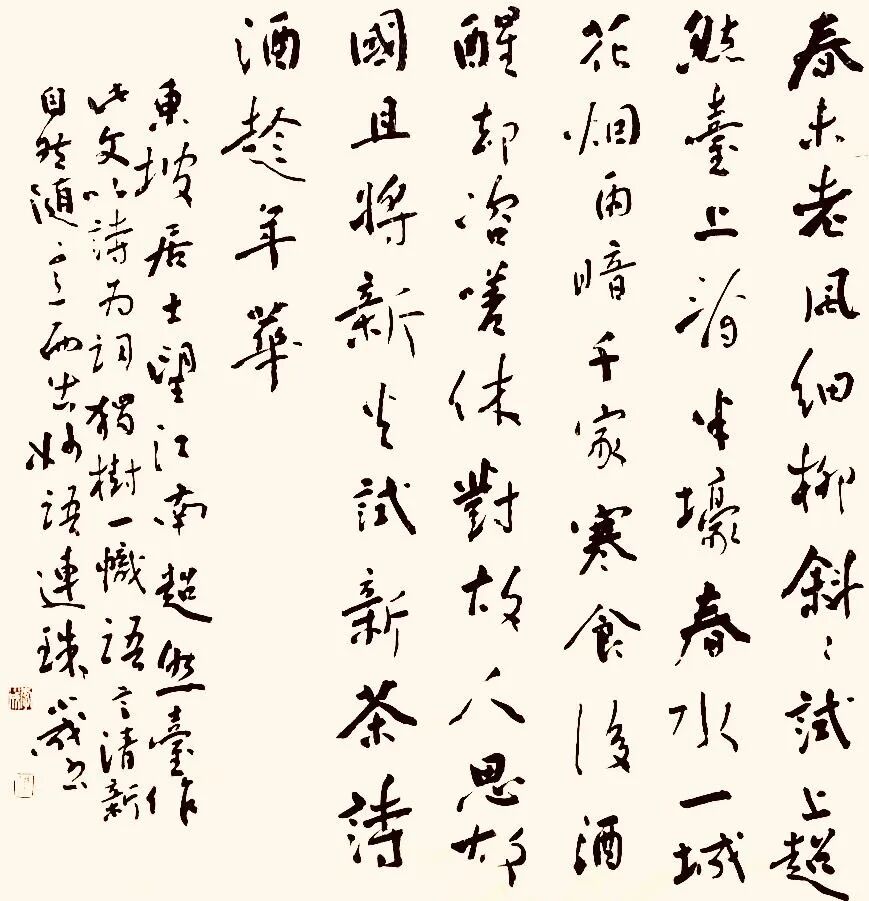 春未老風細柳斜〻試上超
然臺上看半壕春水一城
花烟雨暗千家寒食後酒
醒却咨嗟休對故人思故
國且將新火試新茶詩
酒趁年華
東坡居士望江南超然臺作
此文以詩为詞獨樹一幟語言清新
自然隨意而出妙語連珠